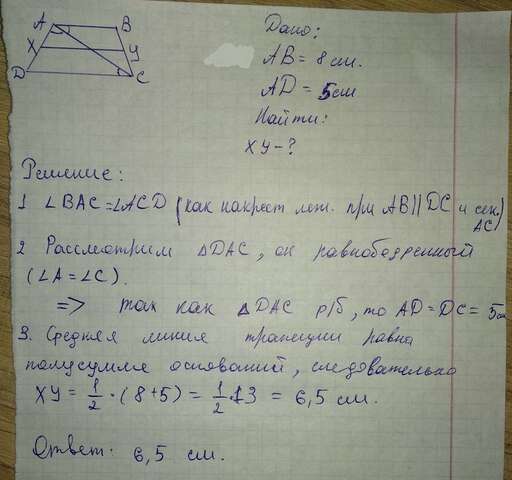 A B
X Y
D C
Дано:
AB = 8 см.
AD = 5 см
Найти:
XY - ?
Решение:
1 ∠BAC = ∠ACD (как накрест леж. при AB || DC и сек.
AC)
2 Рассмотрим △DAC, он равнобедренный
(∠A = ∠C).
=> так как △DAC р/б, то AD = DC = 5 см
3. Средняя линия трапеции равна
полусумме оснований, следовательно
XY = 1/2 · (8+5) = 1/2 · 13 = 6,5 см.
Ответ: 6,5 см.